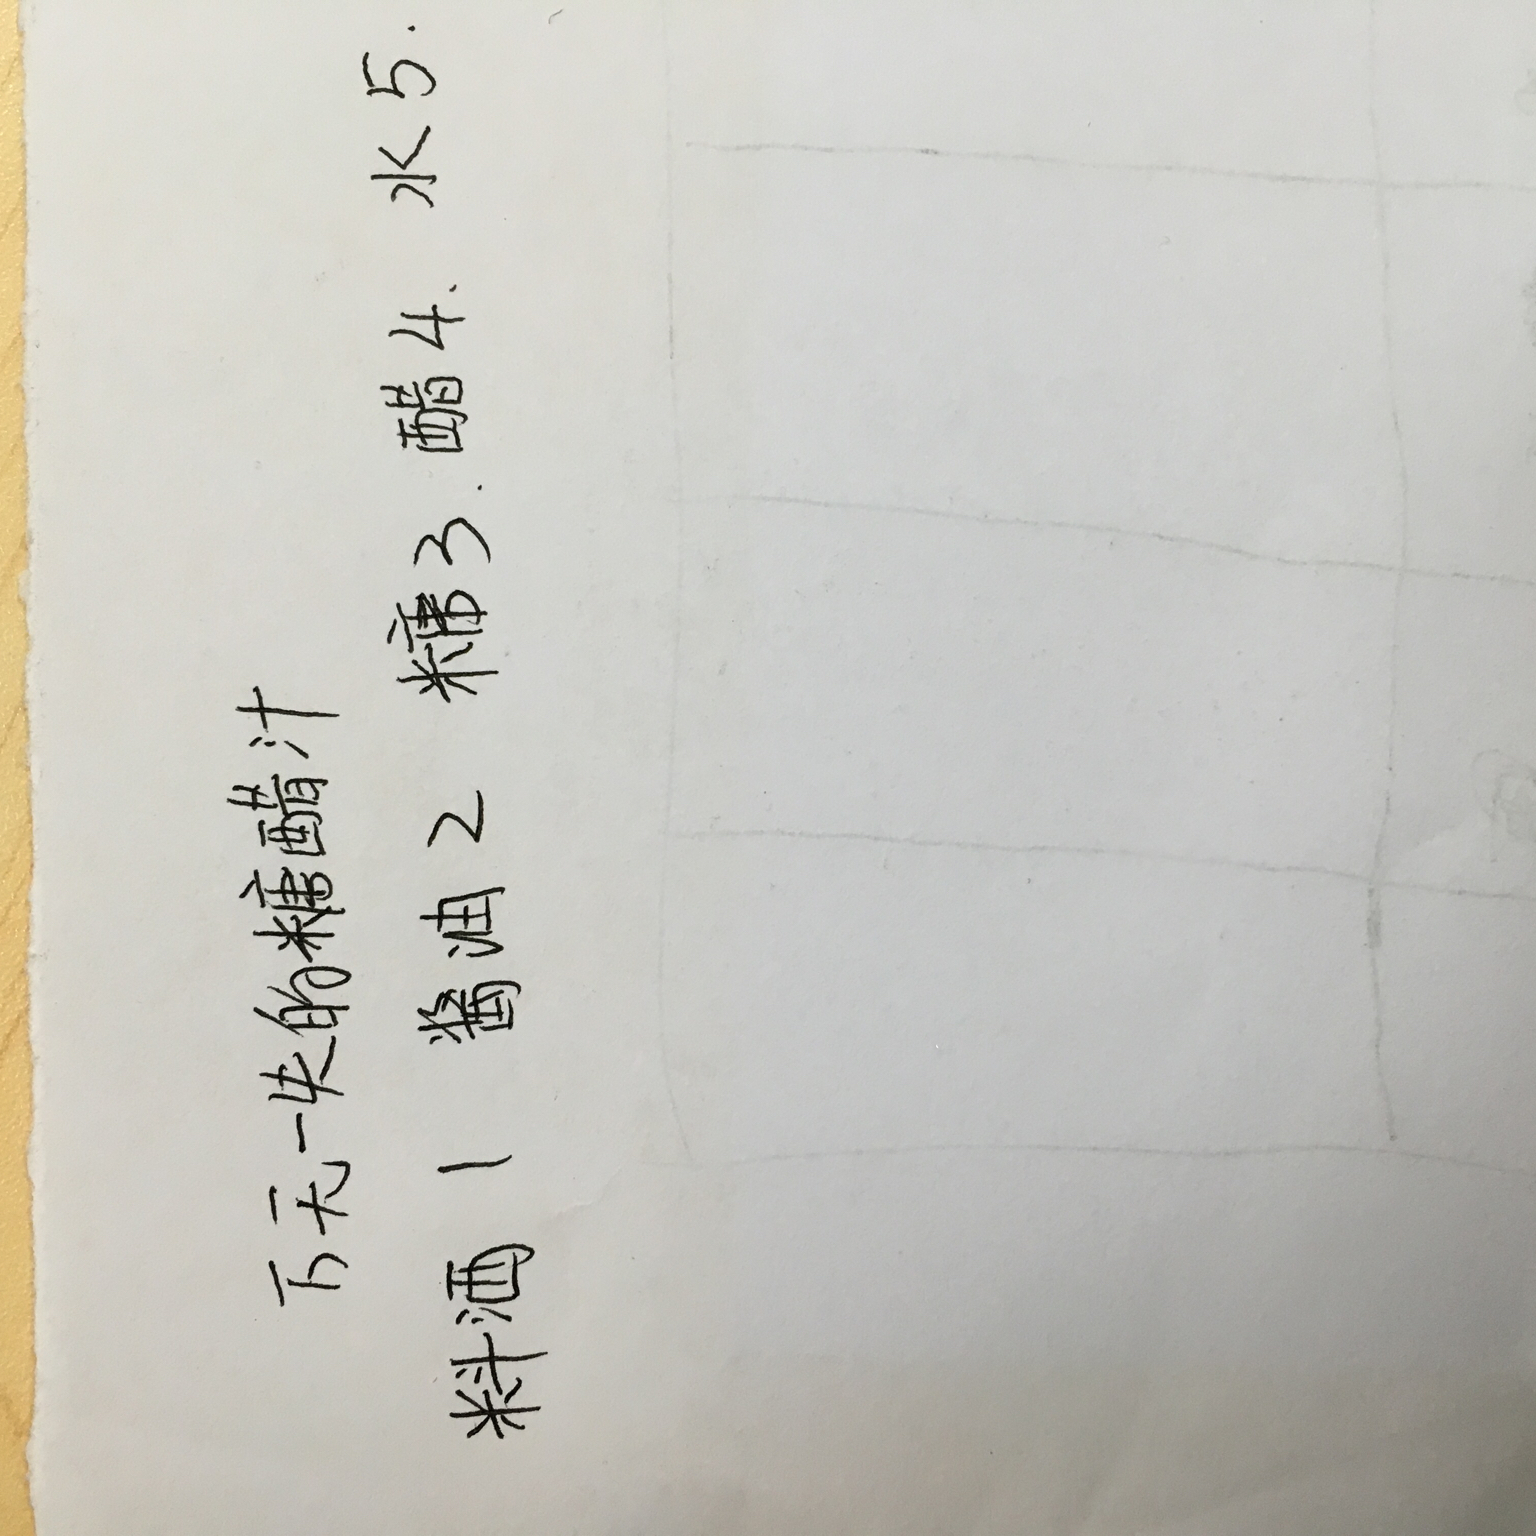 万无一失的糖醋汁
料酒 1 酱油 2 糖 3. 醋 4. 水 5.